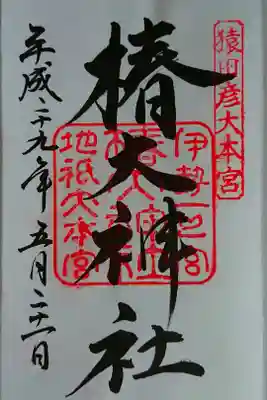 猿田彦大本宮
椿大神社
伊勢一之宮
椿大神社
地祇大本宮
平成二十九年五月二十一日